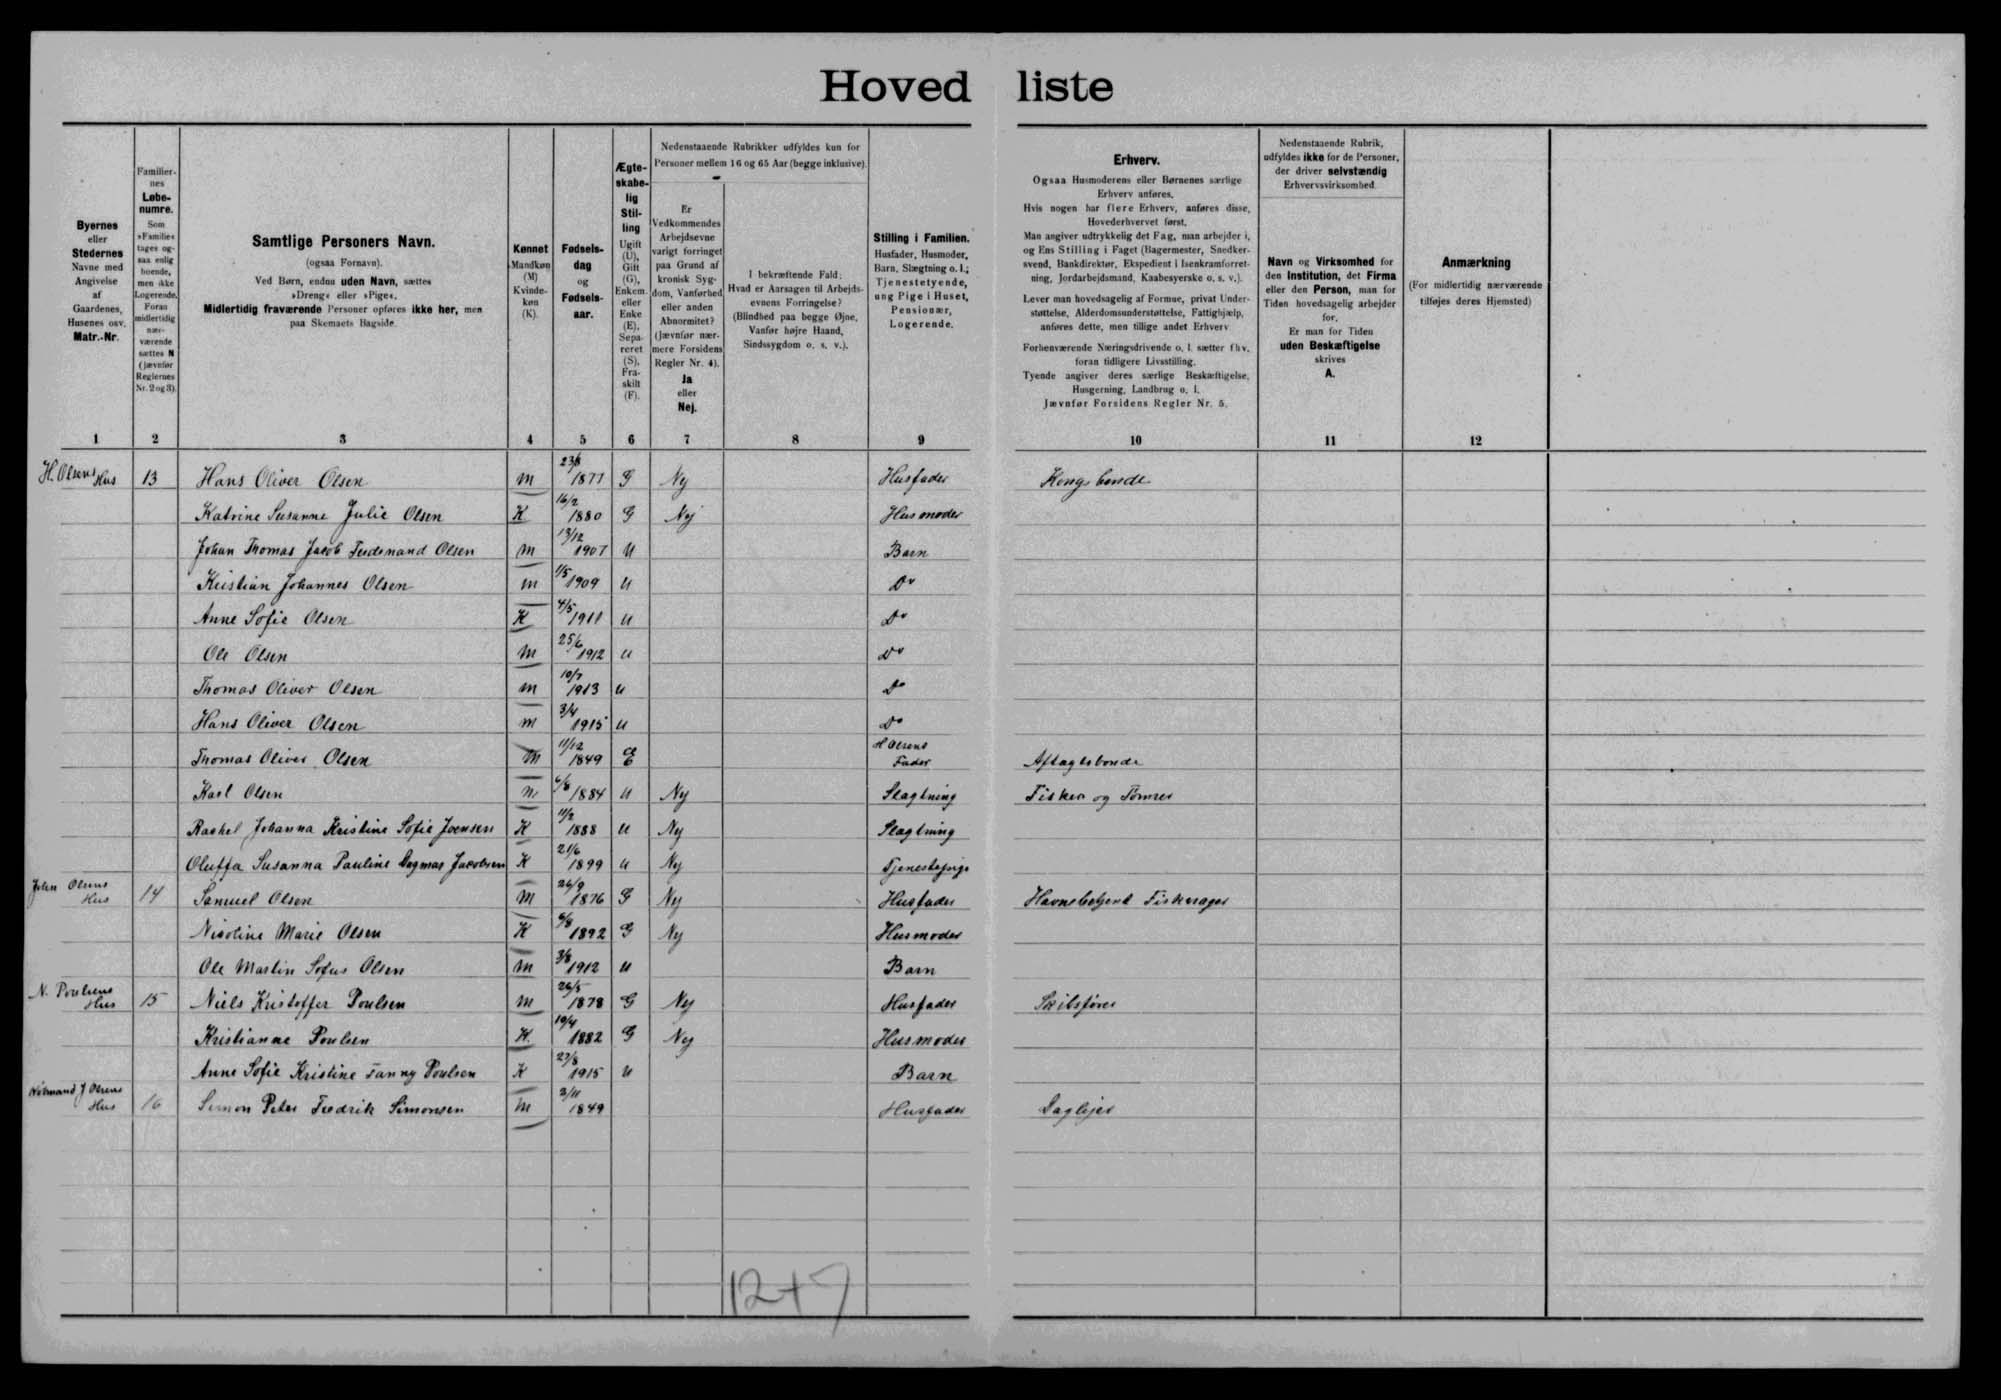 Hovedliste
Byernes
eller
Stedernes
Navne med
Angivelse
af
Gaardenes,
Husenes osv.
Matr.-Nr.
Familier-
nes
Løbe-
numre.
Som
»Familie«
tages og-
saa enlig
boende,
men ikke
Logerende.
Foran
midlertidig
nær-
værende
sættes N
(jævnfør
Reglernes
Nr. 2 og 3).
Samtlige Personers Navn.
(ogsaa Fornavn).
Ved Børn, endnu uden Navn, sættes
»Dreng« eller »Pige«.
Midlertidig fraværende Personer opføres ikke her, men
paa Skemaets Bagside.
Kønnet
Mandkøn
(M)
Kvinde-
køn
(K).
Fødsels-
dag
og
Fødsels-
aar.
Ægte-
skabe-
lig
Stil-
ling
Ugift
(U),
Gift
(G),
Enkem.
eller
Enke
(E),
Sepa-
reret
(S),
Fra-
skilt
(F).
Nedenstaaende Rubrikker udfyldes kun for
Personer mellem 16 og 65 Aar (begge inklusive).
Er
Vedkommendes
Arbejdsevne
varigt forringet
paa Grund af
kronisk Syg-
dom, Vanførhed
eller anden
Abnormitet?
(Jævnfør nær-
mere Forsidens
Regler Nr. 4).
Ja
eller
Nej.
I bekræftende Fald:
Hvad er Aarsagen til Arbejds-
evnens Forringelse?
(Blindhed paa begge Øjne,
Vanfør højre Haand,
Sindssygdom o. s. v.).
Stilling i Familien.
Husfader, Husmoder,
Barn, Slægtning o. l.;
Tjenestetyende,
ung Pige i Huset,
Pensionær,
Logerende.
Erhverv.
Ogsaa Husmoderens eller Børnenes særlige
Erhverv anføres.
Hvis nogen har flere Erhverv, anføres disse,
Hovederhvervet først.
Man angiver udtrykkelig det Fag, man arbejder i,
og Ens Stilling i Faget (Bagermester, Snedker-
svend, Bankdirektør, Ekspedient i Isenkramforret-
ning, Jordarbejdsmand, Kaabesyerske o. s. v.).
Lever man hovedsagelig af Formue, privat Under-
støttelse, Alderdomsunderstøttelse, Fattighjælp,
anføres dette, men tillige andet Erhverv
Forhenværende Næringsdrivende o. l. sætter fhv.
foran tidligere Livsstilling.
Tyende angiver deres særlige Beskæftigelse,
Husgerning, Landbrug o. l.
Jævnfør Forsidens Regler Nr. 5.
Nedenstaaende Rubrik,
udfyldes ikke for de Personer,
der driver selvstændig
Erhvervsvirksomhed.
Navn og Virksomhed for
den Institution, det Firma
eller den Person, man for
Tiden hovedsagelig arbejder
for.
Er man for Tiden
uden Beskæftigelse
skrives
A.
Anmærkning
(For midlertidig nærværende
tilføjes deres Hjemsted)
1 2 3 4 5 6 7 8 9 10 11 12
H. Olsens Hus 13 Hans Oliver Olsen M 1877 G Nej Husfader
Katrine Susanne Julie Olsen K 16/2 1880 G Nej Husmoder
Johan Thomas Jacob Ferdinand Olsen M 13/12 1907 U Barn
Kristian Johannes Olsen M 1/5 1909 U Do
Anne Sofie Olsen K 4/5 1911 U Do
Ole Olsen M 25/6 1912 U Do
Thomas Oliver Olsen M 10/7 1913 U Do
Hans Oliver Olsen M 3/4 1915 U Do
Thomas Oliver Olsen M 11/12 1849 E H Olsens Fader Aftagtsbonde
Karl Olsen M 6/8 1884 U Nej Slagtning Fisker og Tømrer
Rachel Johanna Kristine Sofie Joensen K 11/2 1888 U Nej Slagtning
Oluffa Susanna Pauline Dagmar Jacobsen K 21/6 1899 U Nej Tjenestepige
Olsens Hus 14 Samuel Olsen M 26/9 1876 G Nej Husfader
Nicoline Marie Olsen K 6/8 1892 G Nej Husmoder
Ole Martin Sofus Olsen M 3/8 1912 U Barn
N. Poulsens Hus 15 Niels Kristoffer Poulsen M 26/5 1878 G Nej Husfader Skibsfører
Kristianne Poulsen K 19/4 1882 G Nej Husmoder
Anne Sofie Kristine Fanny Poulsen K 27/8 1915 U Barn
J Olsens Hus 16 Simon Peter Fredrik Simonsen M 2/11 1849 Husfader Daglejer
12+7